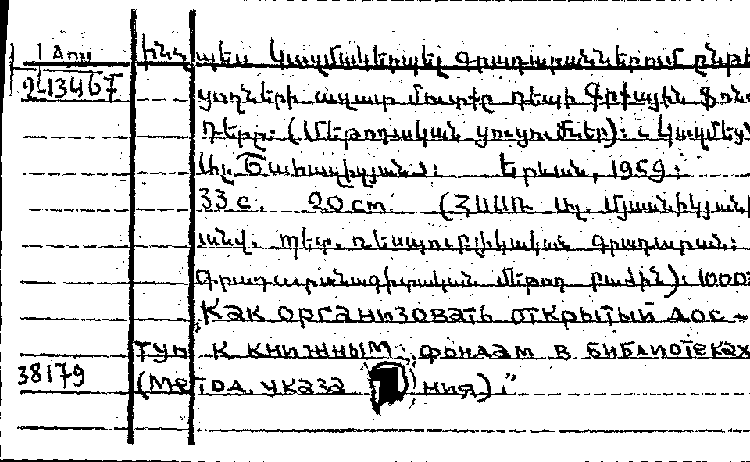 1 Հոս Ինչպես կազմակերպել գրադարաններում ընթեր
913467 ցողների ազատ մուտքը դեպի գրքային ֆոն
դերը: (Մեթոդական ցուցումներ): Կազմեց
Երևան, 1959:
33 с. 20 cm. (ՀՍՍՌ Ալ. Մյասնիկյանի
անվ. պետ. ռեսպուբլիկական գրադարան:
Գրադարանագիտական մեթոդ բաժին): 1000
Как организовать открытый дос-
туп к книжным фондам в библиотеках
38179 (Метод. указания).